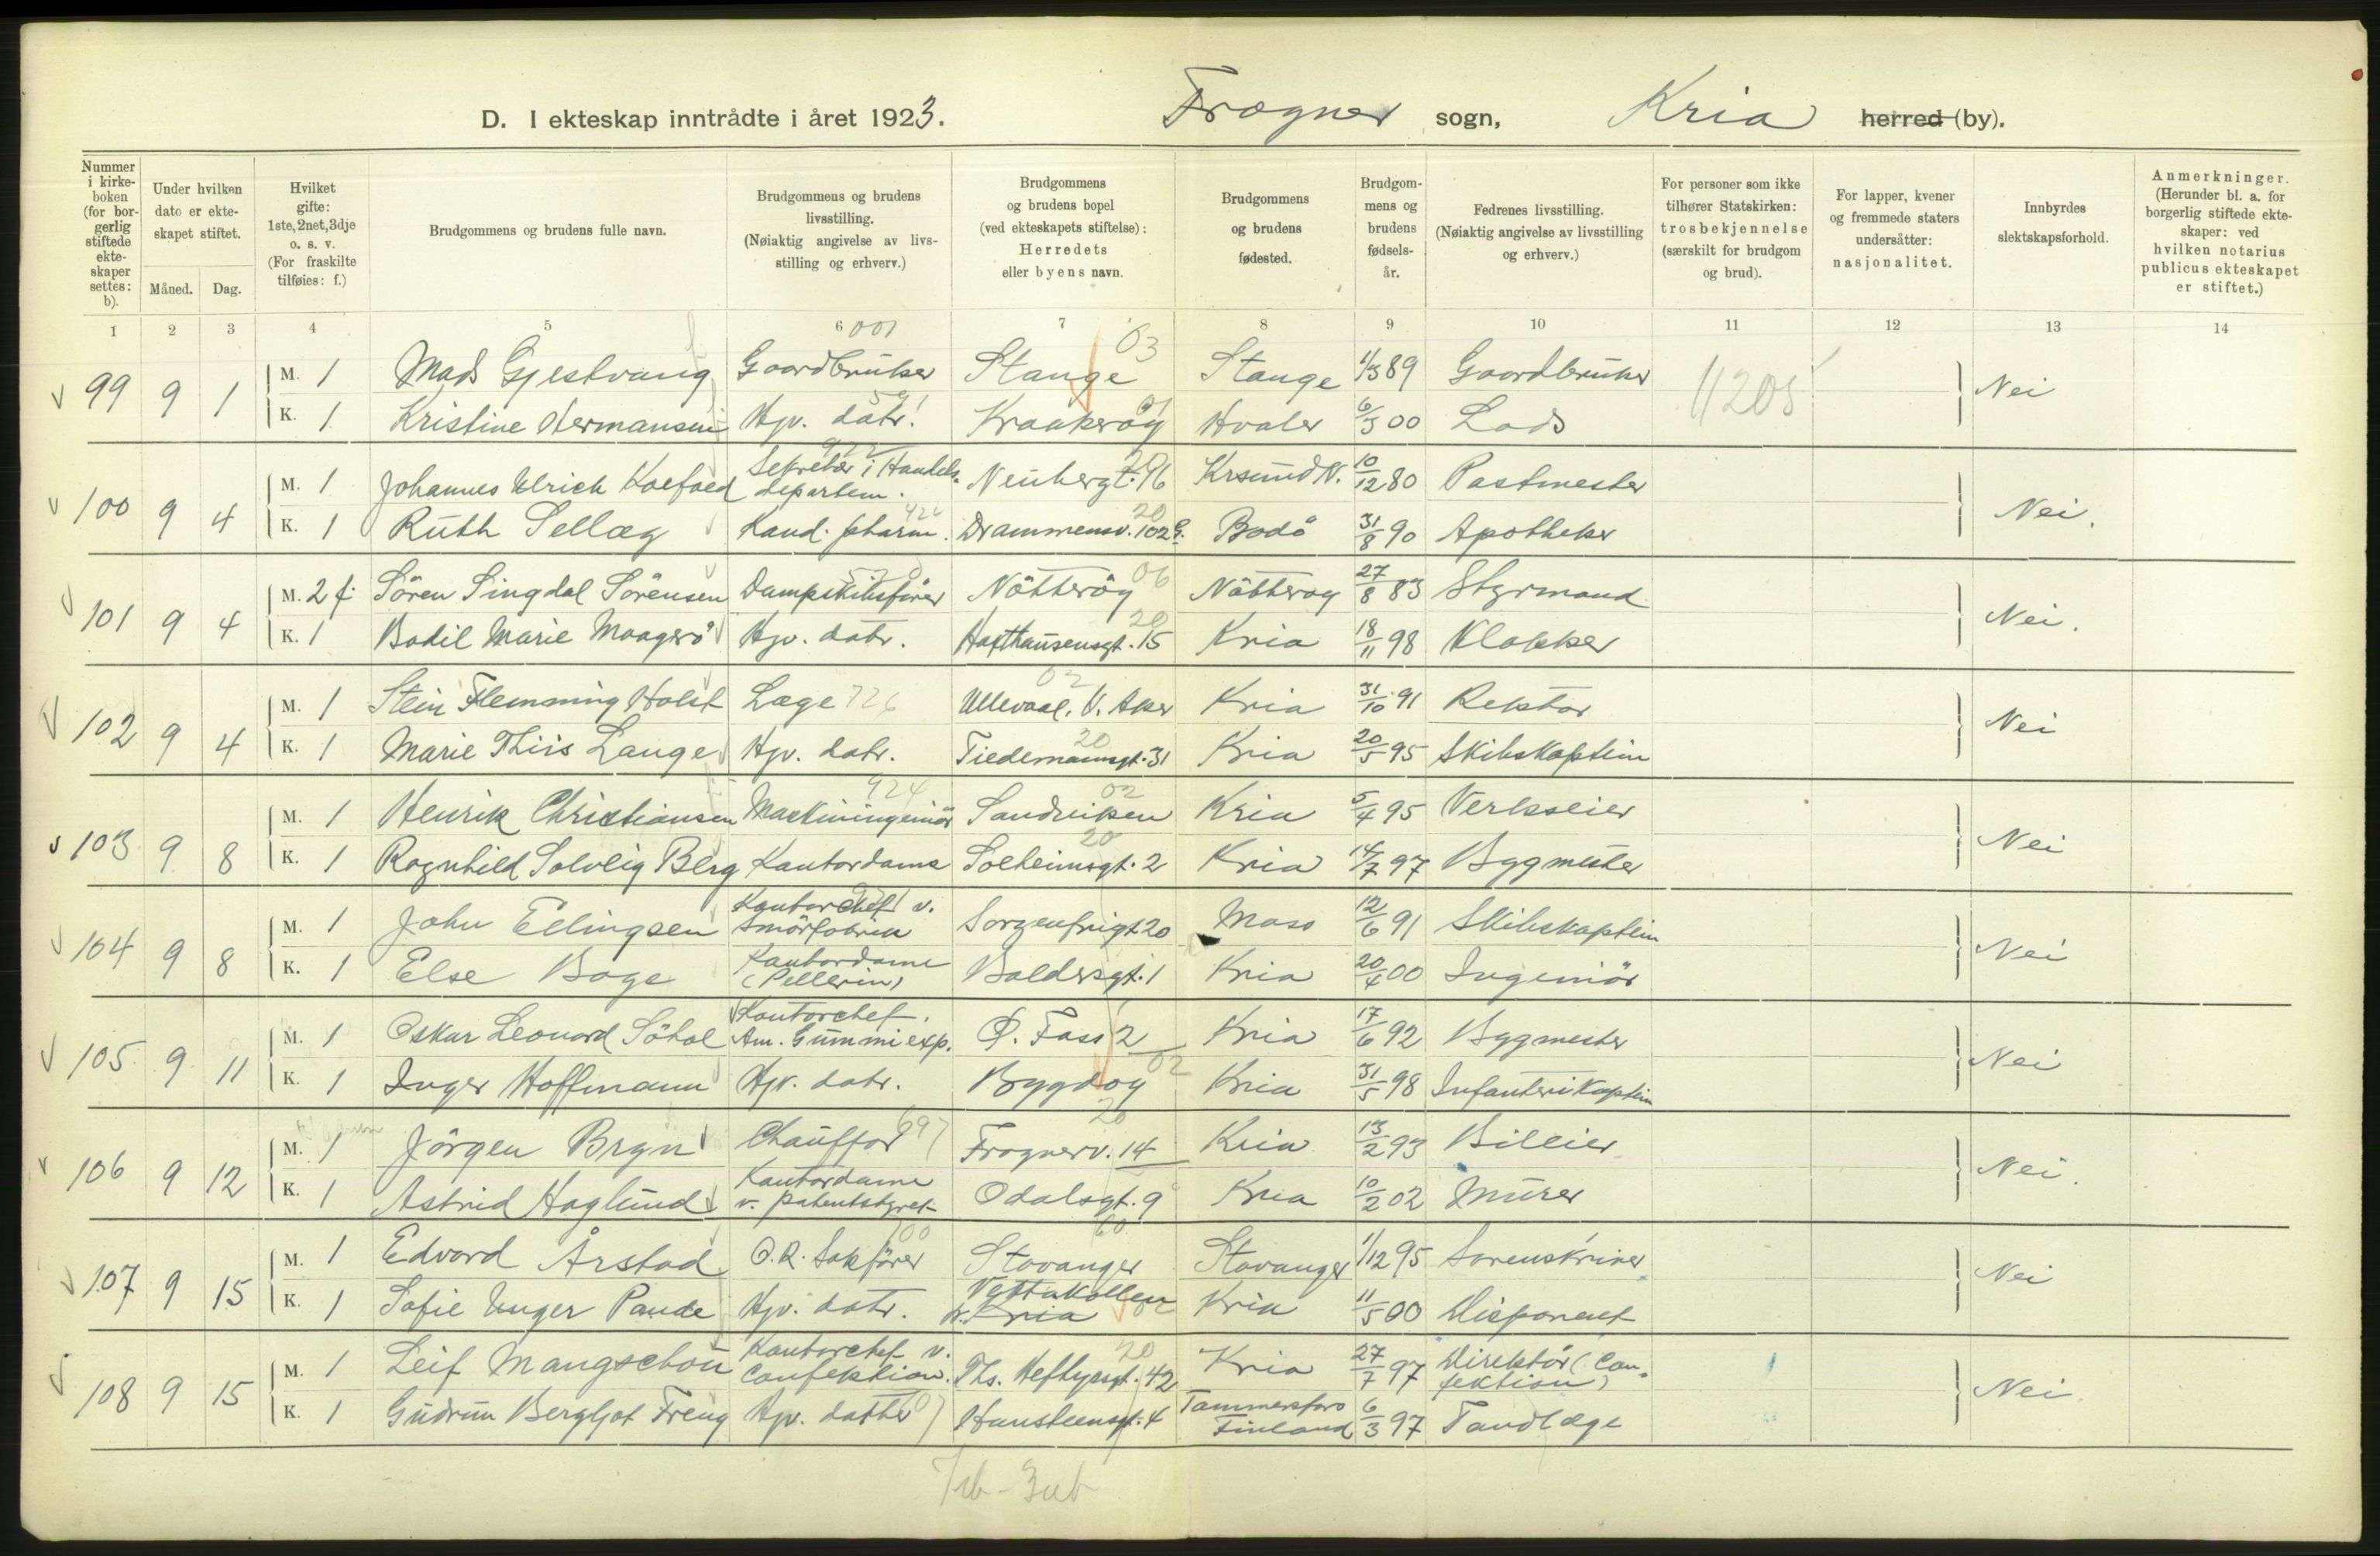 D. I ekteskap inntrådte i året 1923. Frogner sogn, Kria herred (by).
Nummer i kirke- boken (for bor- gerlig stiftede ekte- skaper settes: b).
Under hvilken dato er ekte- skapet stiftet.
Måned. Dag.
Hvilket gifte: 1ste, 2net, 3dje o. s. v. (For fraskilte tilføies: f.)
Brudgommens og brudens fulle navn.
Brudgommens og brudens livsstilling. (Nøiaktig angivelse av livs- stilling og erhverv.)
Brudgommens og brudens bopel (ved ekteskapets stiftelse): Herredets eller byens navn.
Brudgommens og brudens fødested.
Brudgom- mens og brudens fødsels- år.
Fedrenes livsstilling. (Nøiaktig angivelse av livsstilling og erhverv.)
For personer som ikke tilhører Statskirken: trosbekjennelse (særskilt for brudgom og brud).
For lapper, kvener og fremmede staters undersåtter: nasjonalitet.
Innbyrdes slektskapsforhold.
Anmerkninger. (Herunder bl. a. for borgerlig stiftede ekte- skaper: ved hvilken notarius publicus ekteskapet er stiftet.)
1 2 3 4 5 6 7 8 9 10 11 12 13 14
001 03
99 9 1 M. 1 Mads Gjestvang Gaardbruker Stange Stange 1/3 89 Gaardbruker 11205 Nei
K. 1 Kristine Hermansen Hjv. datr. Kraakerøy Hvaler 6/3 00 Lods
100 9 4 M. 1 Johannes Ulrich Koefoed Sekretær i Handels. departem. Neubergt. 16 Krsund N. 10/12 80 Postmester Nei.
K. 1 Ruth Sellæg Kand. pharm. Drammensv. 102 G. Bodö 31/8 90 Apotheker
101 9 4 M. 2 f. Sören Singdal Sörensen Dampskibsfører Nötteröy 06 Nötteröy 27/8 83 Styrmand Nei.
K. 1 Bodil Marie Maagerö Hjv. datr. Haxthausensgt. 15 Kria 18/11 98 Klokker
102 9 4 M. 1 Stein Flemming Holst Læge 726 Ullevaal, V. Aker Kria 31/10 91 Rektor Nei
K. 1 Marie Thiis Lange Hjv. datr. Tiedemannsgt. 31 Kria 20/5 95 Skibskaptein
924 02
103 9 8 M. 1 Henrik Christiansen Maskiningeniör Sandviken Kria 5/4 95 Verkseier Nei
K. 1 Ragnhild Solveig Berg Kontordame Solheimsgt. 2 Kria 14/7 97 Bygmester
104 9 8 M. 1 John Ellingsen Kontorchef v. Smörfabrik Sorgenfrigt 20 Moss 12/6 91 Skibskaptein Nei
K. 1 Else Boge Kontordame (Pellerin) Baldersgt. 1 Kria 20/4 00 Ingeniör
105 9 11 M. 1 Oskar Leonard Söhol Kontorchef. Am. Gummiexp. O. Fass 2 Kria 17/6 92 Bygmester Nei
K. 1 Inger Hoffmann Hjv. datr. Bygdöy 02 Kria 31/5 98 Infanterikaptein
106 9 12 M. 1 Jörgen Bryn Chauffør 697 Frognerv. 14 Kria 13/2 93 Bileier Nei.
K. 1 Astrid Haglund Kontordame v. patentstyret Odalsgt. 9 Kria 10/2 02 Murer
107 9 15 M. 1 Edvard Årstad O.R. Sakfører Stavanger Stavanger 1/12 95 Sorenskriver Nei
K. 1 Sofie Unger Pande Hjv. datr. Vettakollen V. Kria Kria 11/5 00 Disponent
108 9 15 M. 1 Leif Mangschou Kontorchef v. Confektion. Ths. Heftyesgt. 42 Kria 27/7 97 Direktör (Con- fektion) Nei
K. 1 Gudrun Bergljot Freng Hjv. datter Hansteensgt. 4 Tammersfors Finland 6/3 97 Tandlæge